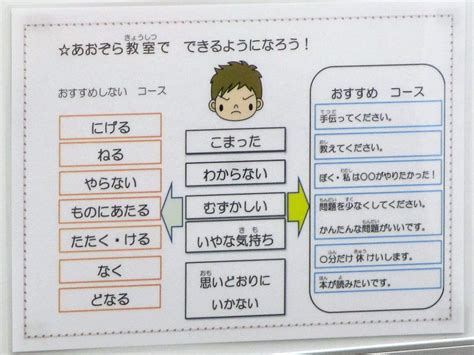 ☆あおぞら教室で できるようになろう！
おすすめしない コース
にげる
ねる
やらない
ものにあたる
たたく・ける
なく
どなる
こまった
わからない
むずかしい
いやな気持ち
思いどおりに
いかない
おすすめ コース
手伝ってください。
教えてください。
ぼく・私は〇〇がやりたかった！
問題を少なくしてください。
かんたんな問題がいいです。
〇分だけ休けいします。
本が読みたいです。